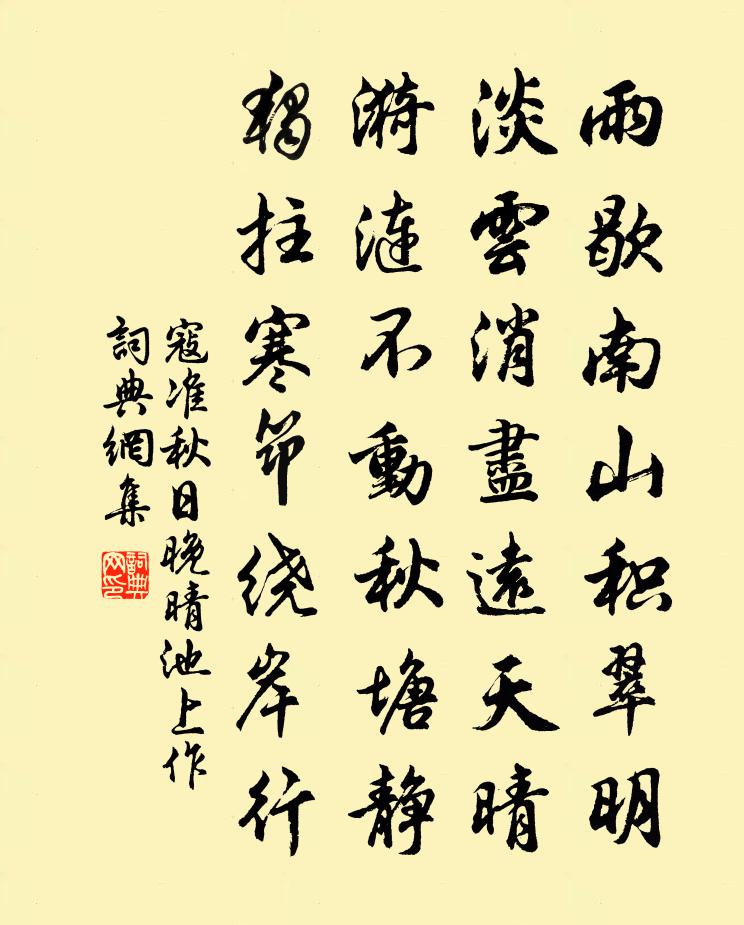 雨歇南山积翠明
淡雲消盡遠天晴
漪漣不動秋塘静
獨拄寒笻绕岸行
寇准秋日晚晴池上作
詞典網集
詞典
网印